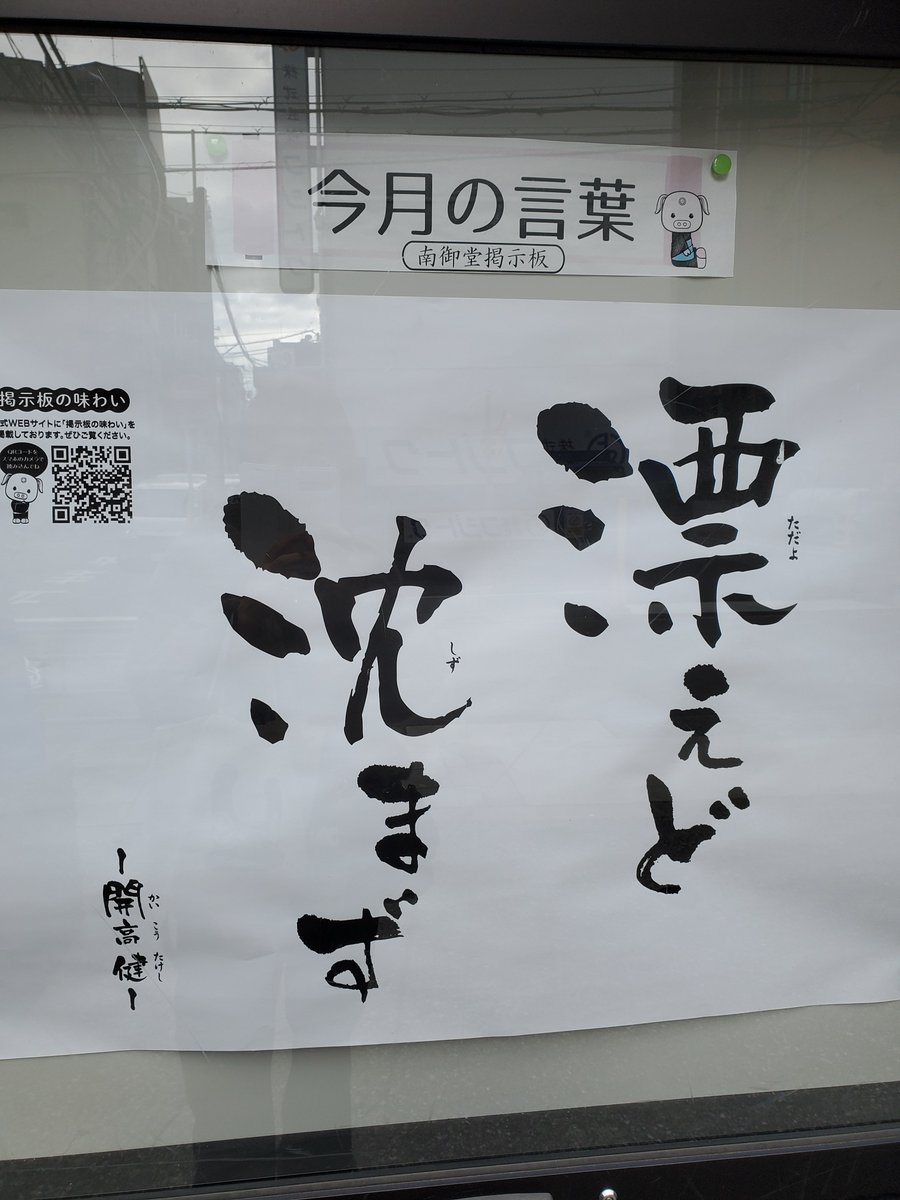 今月の言葉
南御堂掲示板
漂えど
ただよ
沈まず
しず
ー開高健ー
かいこうたけし
掲示板の味わい
式WEBサイトに「掲示板の味わい」を
掲載しております。ぜひご覧ください。
QRコードを
スマホのカメラで
読みこんでね